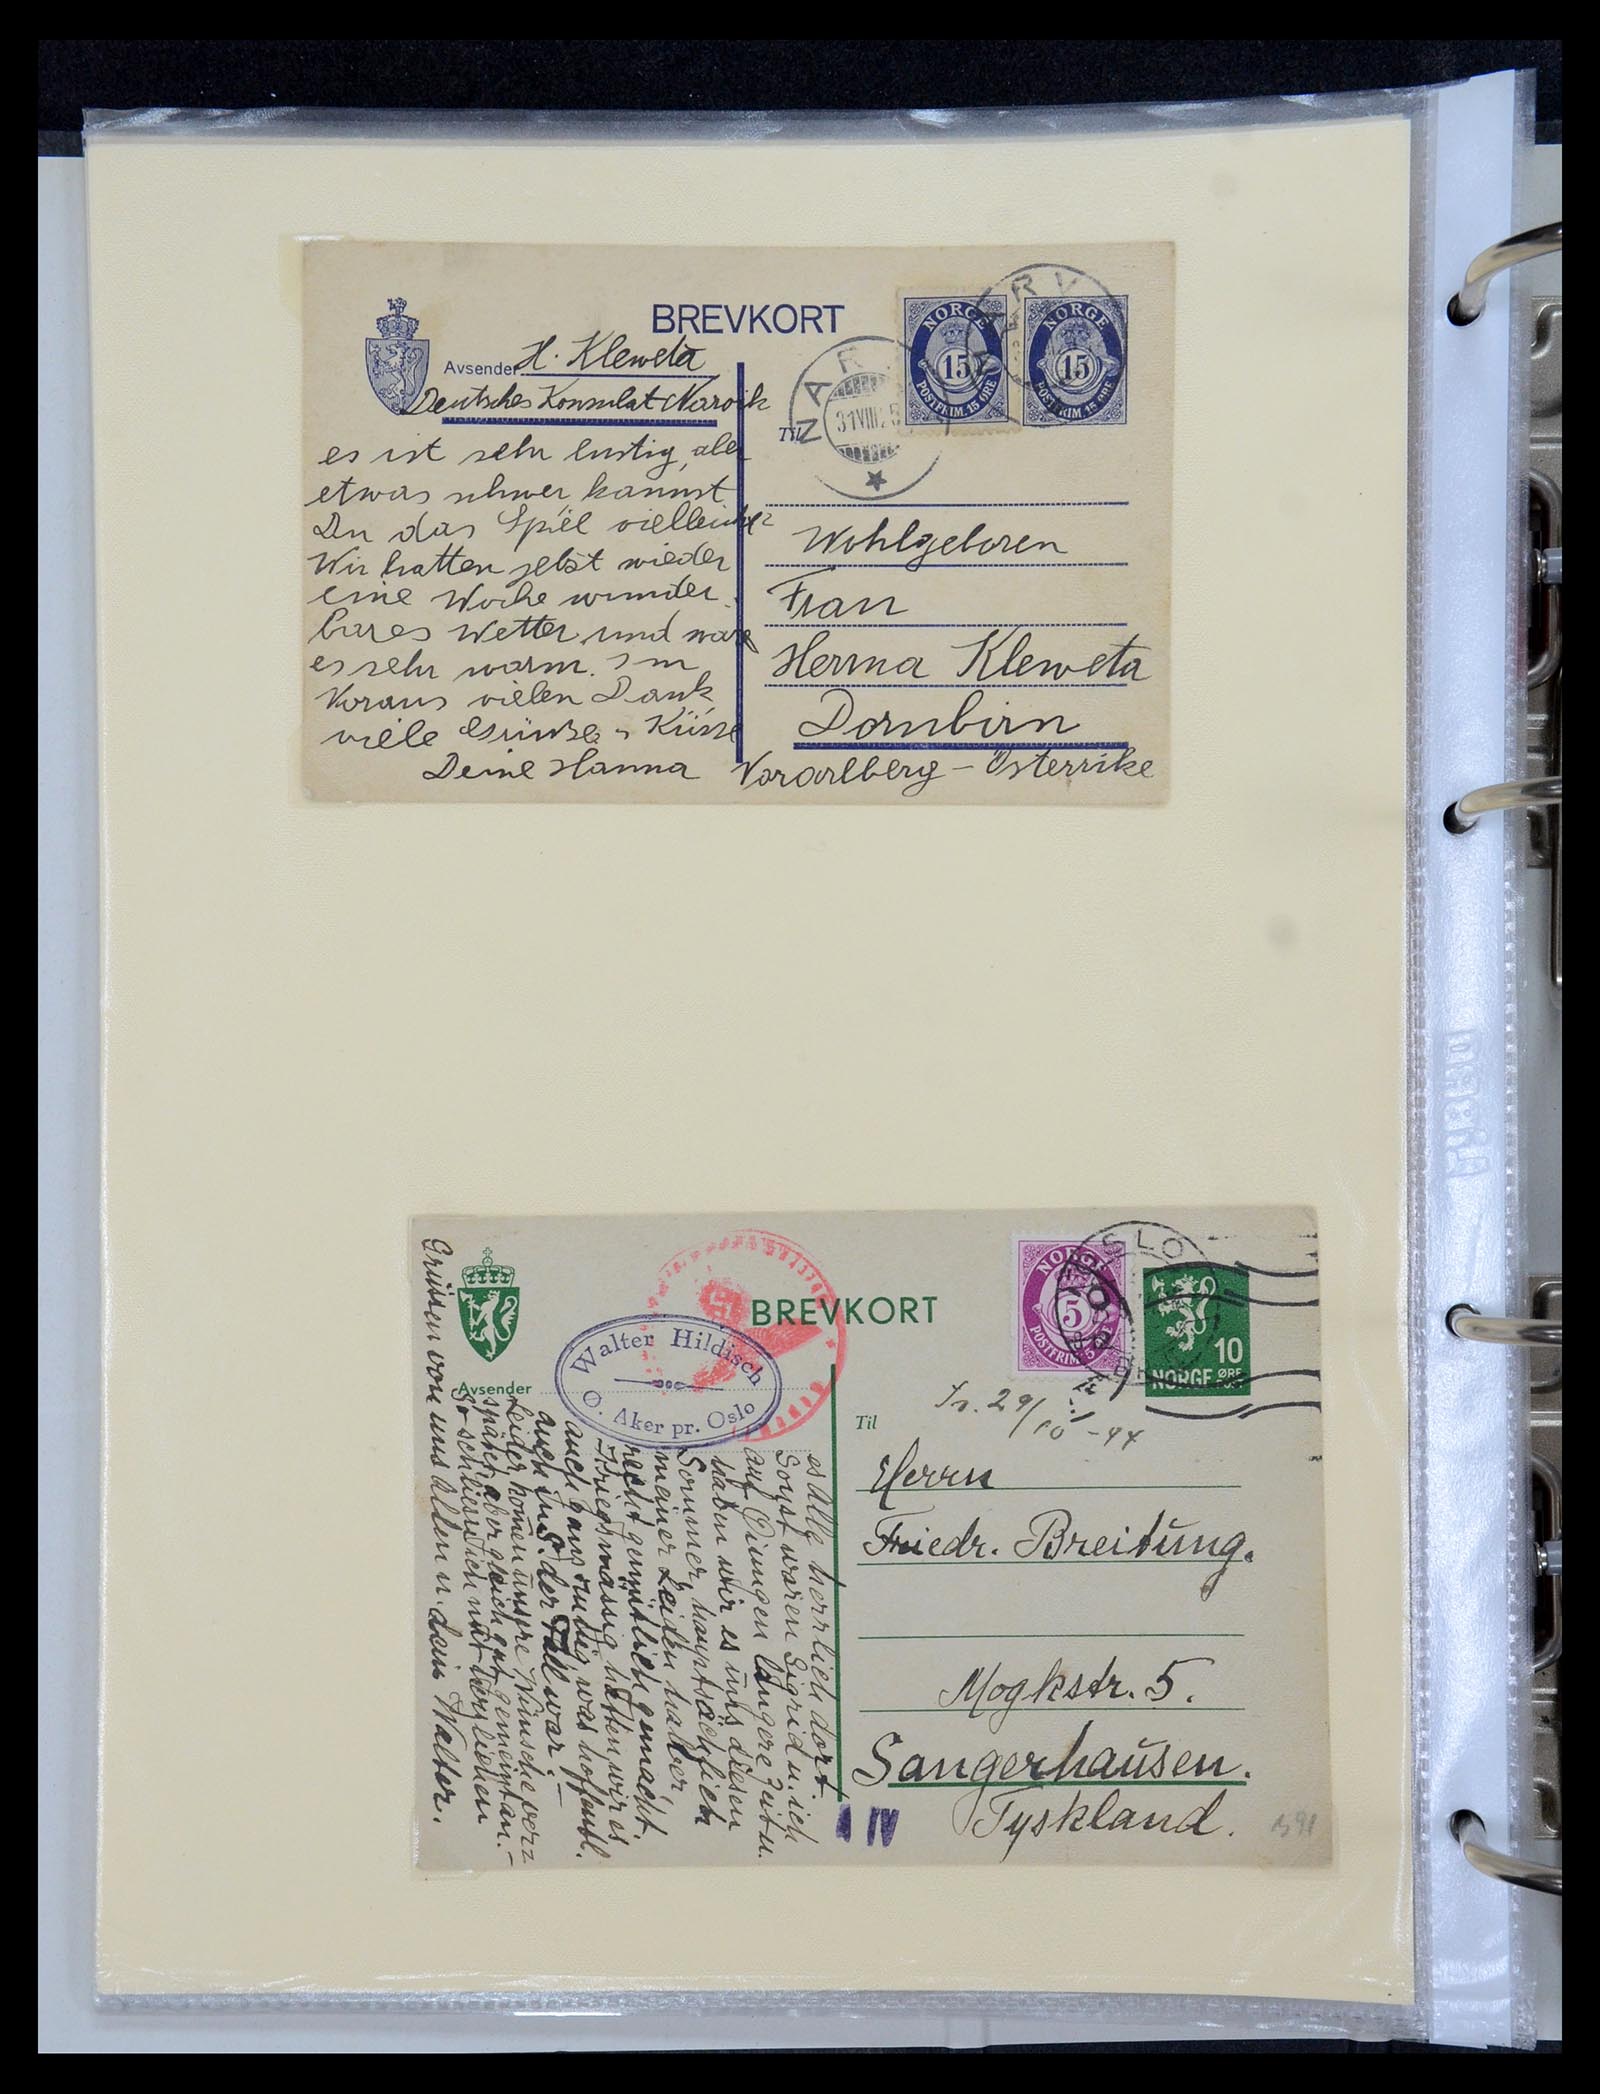 BREVKORT
NORGE
15
POSTFRIM. 15 ØRE
NORGE
15
POSTFRIM. 15 ØRE
NARV
NAR
31 VIII 25
Avsender H. Kleweta
Deutsches Konsulat Narvik
Til
es ist sehr lustig, aber
etwas schwer kannst
Du das Spiel vielleicht?
Wir hatten jetzt wieder
eine Woche wunder-
bares Wetter und war
es sehr warm. Im
Voraus vielen Dank
viele Grüsse u Küsse
Deine Hanna
Wohlgeboren
Frau
Herma Kleweta
Dornbirn
Vorarlberg - Österrike
BREVKORT
NORGE
5
POSTFRIM. 5 ØRE
OSLO
10
ØRE
NORGE
Walter Hildisch
Ø. Aker pr. Oslo
Avsender
Til
29/10 - 44
Herrn
Friedr. Breitung.
Mogkstr. 5.
Sangerhausen.
Tyskland.
IV
es alle herrlich dort
Sonst waren Sigrid u. ich
auf Dingen längere Zeit u.
haben wir es uns diesen
Sommer, hauptsächlich
meiner Leiden halber
recht gemütlich gemacht.
Kriegsmässig hatten wir es
auch ganz ruhig, was hoffentl.
auch in S. der Fall war. -
Leider komen unsre Wünsche
später, aber gleich gut gemeint an. -
So schliesse ich mit herzlichen
Grüssen von uns Allen u. dein Walter.